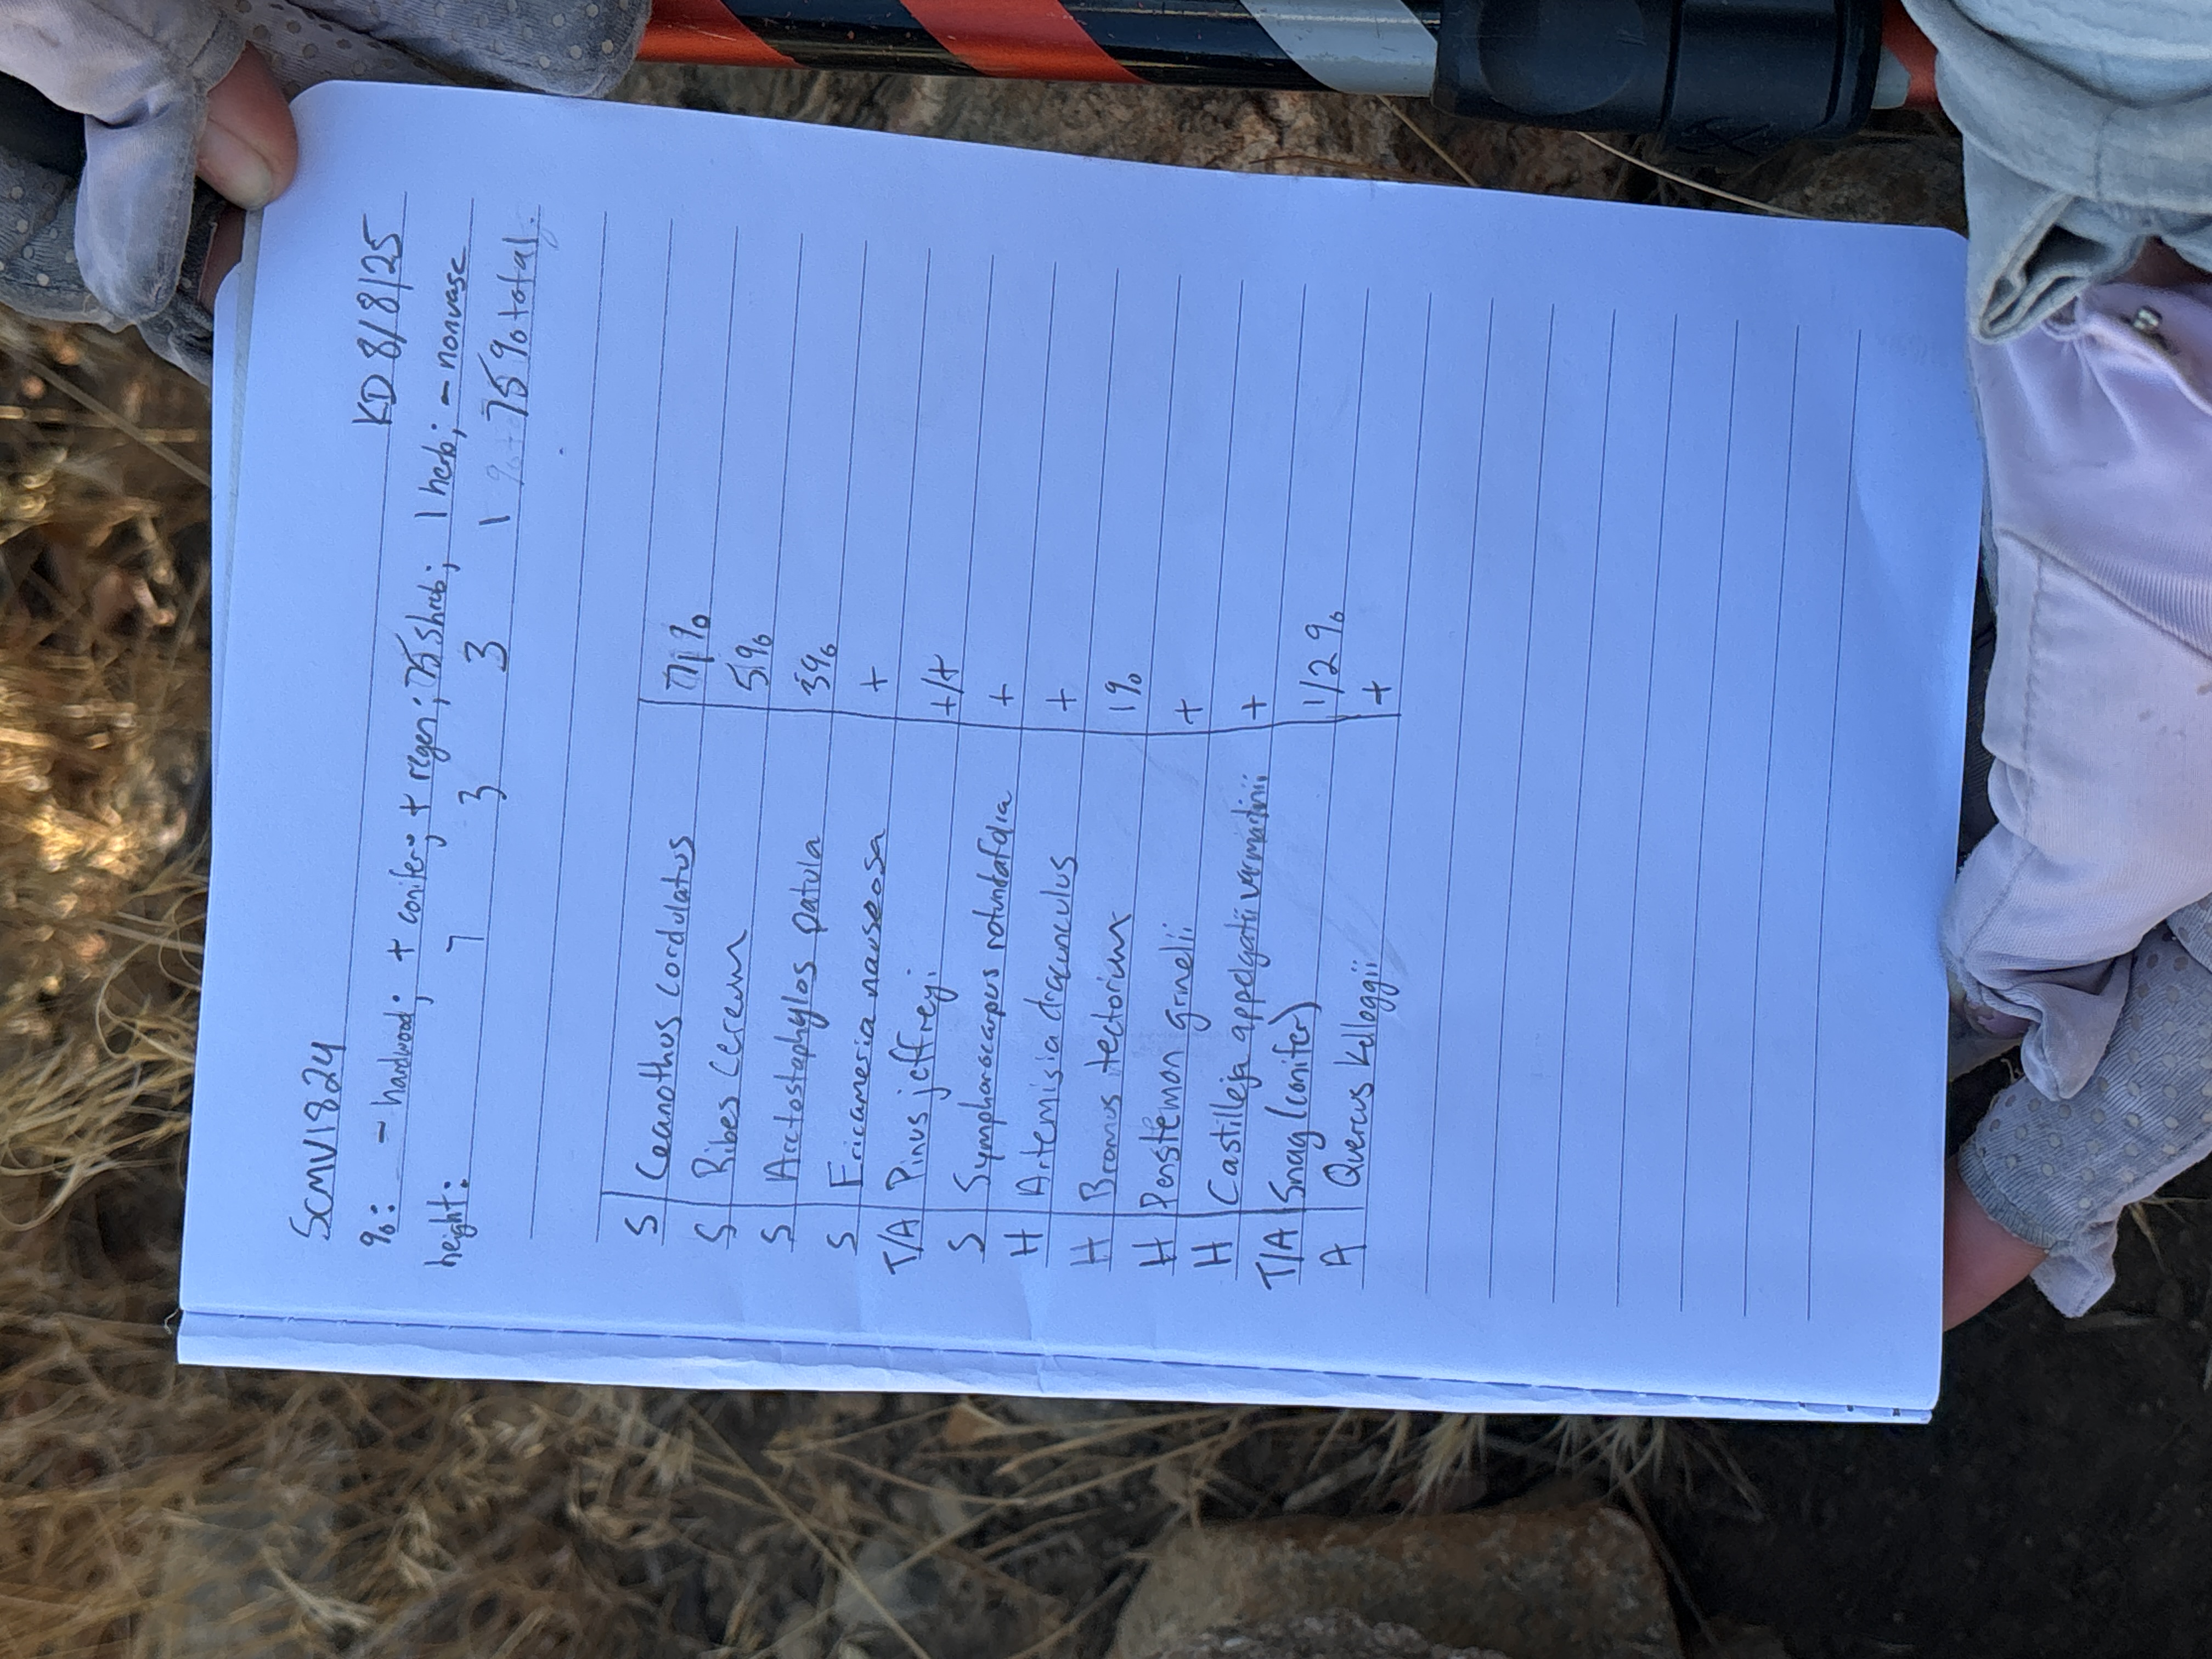 SCMV1824 KD 8/8/25
%: - hardwood; + conifer; + regen; 75 shrub; 1 herb; - nonvasc
height: 7 3 3 1 75% total.
S Ceanothus cordulatus 71%
S Ribes cereum 5%
S Arctostaphylos patula 3%
S Ericamesia nauseosa +
T/A Pinus jeffreyi +/+
S Symphoroacarpus rotundafolia +
H Artemisia dracunculus +
H Bromus tectorium 1%
H Penstemon grinelii +
H Castilleja appelgatii var martinii +
T/A Snag (conifer) 1/2%
A Quercus kelloggii +